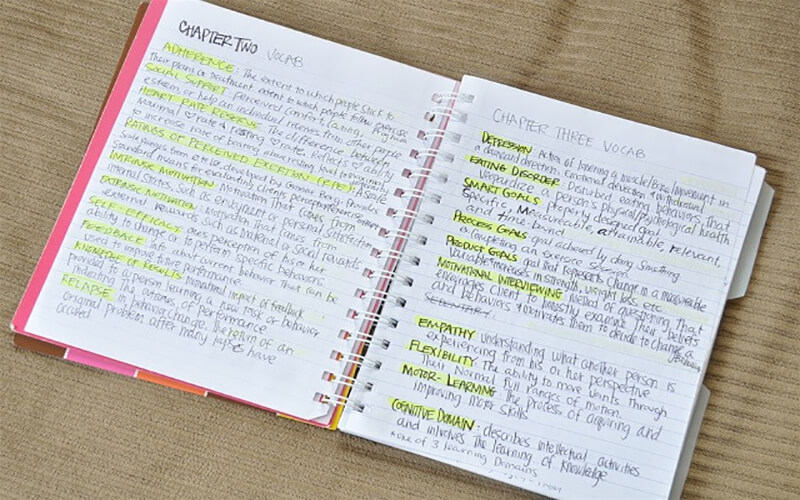 CHAPTER TWO VOCAB
ADHERENCE: The extent to which people stick to
their plans or treatment. extent to which people follow exercise program
SOCIAL SUPPORT: perceived comfort, caring,
esteem or help an individual receives from other people
HEART RATE RESERVE: The difference between
maximal ♡ rate & resting ♡ rate. Reflects ♡'s ability
to increase rate of beating above resting level to
RATINGS OF PERCEIVED EXERTION (RPE): A scale
ranges from to developed by Gunnar Borg. Provides
standard means for evaluating clients perception
INTRINSIC MOTIVATION: Motivation that comes from
internal states, such as enjoyment or personal satisfaction
EXTRINSIC MOTIVATION: motivation that comes from
external rewards such as material or social rewards
SELF-EFFICACY: one's perception of his or her
ability to change or to perform specific behaviors
FEEDBACK: info about current behavior that can be
used to improve future performance.
KNOWLEDGE OF RESULTS: motivational impact of feedback
provided to a person learning a new task or behavior
indicating the outcomes of performance
RELAPSE: in behavior change, the return of an
original problem after many lapses have
occured
CHAPTER THREE VOCAB
DEPRESSION: Action of lowering a muscle/Bone/movement in
a downward direction. Emotional dejection & withdrawal
EATING DISORDER: Disturbed eating behaviors that
jeopardize a person's physical/psychological health
SMART GOALS: properly designed goal.
Specific, Measureable, attainable, relevant,
and time-bound
PROCESS GOALS goal achieved by doing something
completing an exercise session
PRODUCT GOALS: goal that represents change in a measureable
variable. increases in strength, weight loss, etc.
MOTIVATIONAL INTERVIEWING: method of questioning that
engages client to honestly examine their beliefs
and behaviors & motivates them to decide to change a
EMPATHY: understanding what another person is
experiencing from his or her perspective
FLEXIBILITY: The ability to move joints through
their normal full ranges of motion.
MOTOR-LEARNING: The process of acquiring and
improving motor skills
COGNITIVE DOMAIN: describes intellectual activities
and involves the learning of knowledge
one of 3 learning Domains